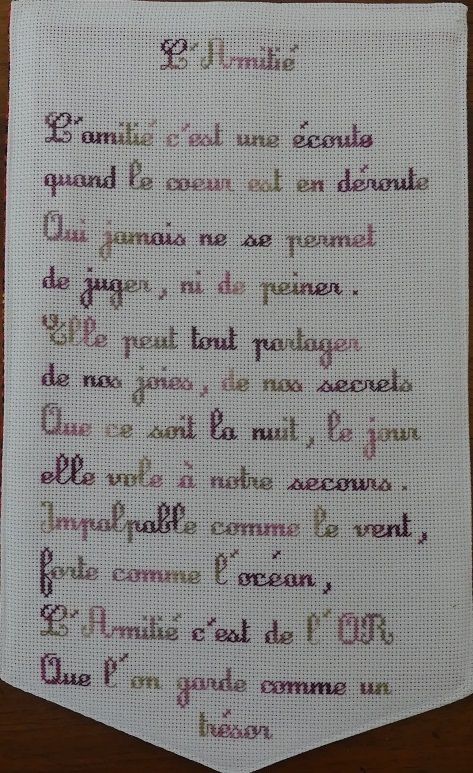 L'Amitié
L'amitié c'est une écoute
quand le coeur est en déroute
Qui jamais ne se permet
de juger, ni de peiner.
Elle peut tout partager
de nos joies, de nos secrets
Que ce soit la nuit, le jour
elle vole à notre secours.
Impalpable comme le vent,
forte comme l'océan,
L'Amitié c'est de l'OR
Que l'on garde comme un
trésor